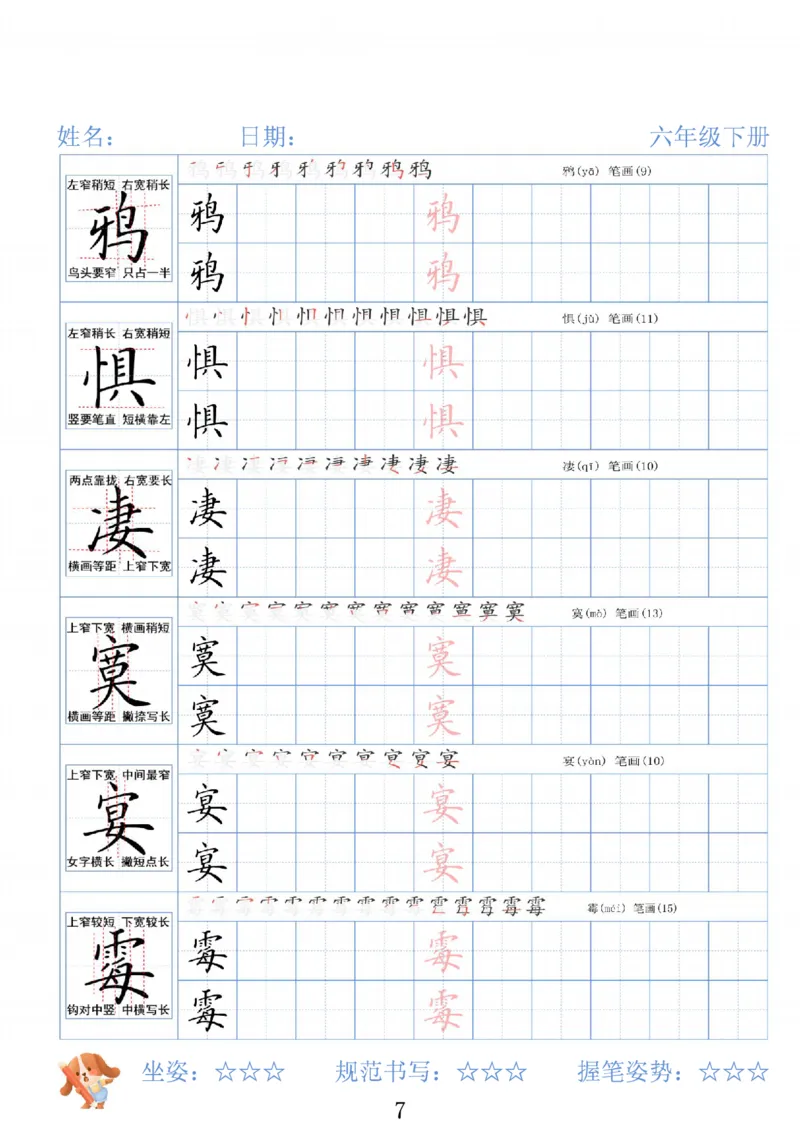 姓名： 日期： 六年级下册
左窄稍短 右宽稍长
鸦
鸟头要窄 只占一半
鸦(yā) 笔画(9)
鸦 鸦
鸦 鸦
左窄稍长 右宽稍短
惧
竖要笔直 短横靠左
惧(jù) 笔画(11)
惧 惧
惧 惧
两点靠拢 右宽要长
凄
横画等距 上窄下宽
凄(qī) 笔画(10)
凄 凄
凄 凄
上窄下宽 横画稍短
寞
横画等距 撇捺写长
寞(mò) 笔画(13)
寞 寞
寞 寞
上窄下宽 中间最窄
宴
女字横长 撇短点长
宴(yàn) 笔画(10)
宴 宴
宴 宴
上窄较短 下宽较长
霉
钩对中竖 中横写长
霉(méi) 笔画(15)
霉 霉
霉 霉
坐姿：☆☆☆ 规范书写：☆☆☆ 握笔姿势：☆☆☆
7